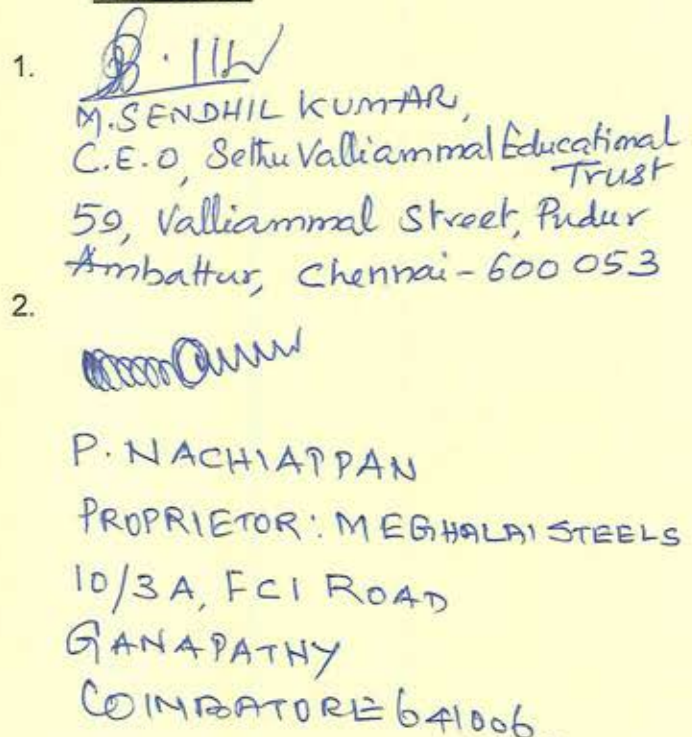 1.
M. SENDHIL KUMAR,
C.E.O, Sethu Valliammal Educational
Trust
59, Valliammal Street, Pudur
Ambattur, Chennai - 600 053
2.
P. NACHIAPPAN
PROPRIETOR: MEGHALAI STEELS
10/3A, FCI ROAD
GANAPATHY
COIMBATORE 641006